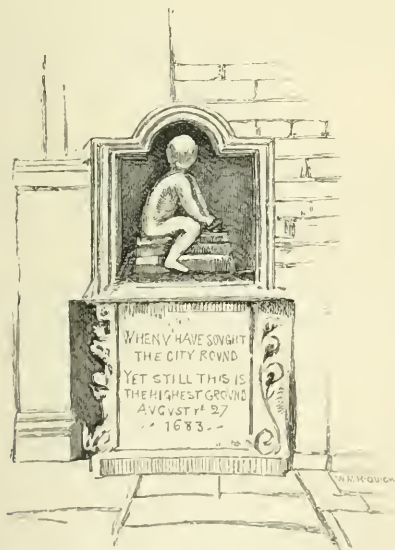 WHEN V HAVE SOVGHT
THE CITY ROVND
YET STILL THIS IS
THE HIGHEST GROVND
AVGVST Yᵉ 27
·· 1683 ··